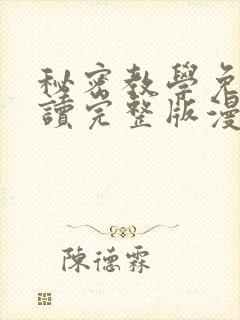 秘密教學免
讀完整版漫
陳德霖